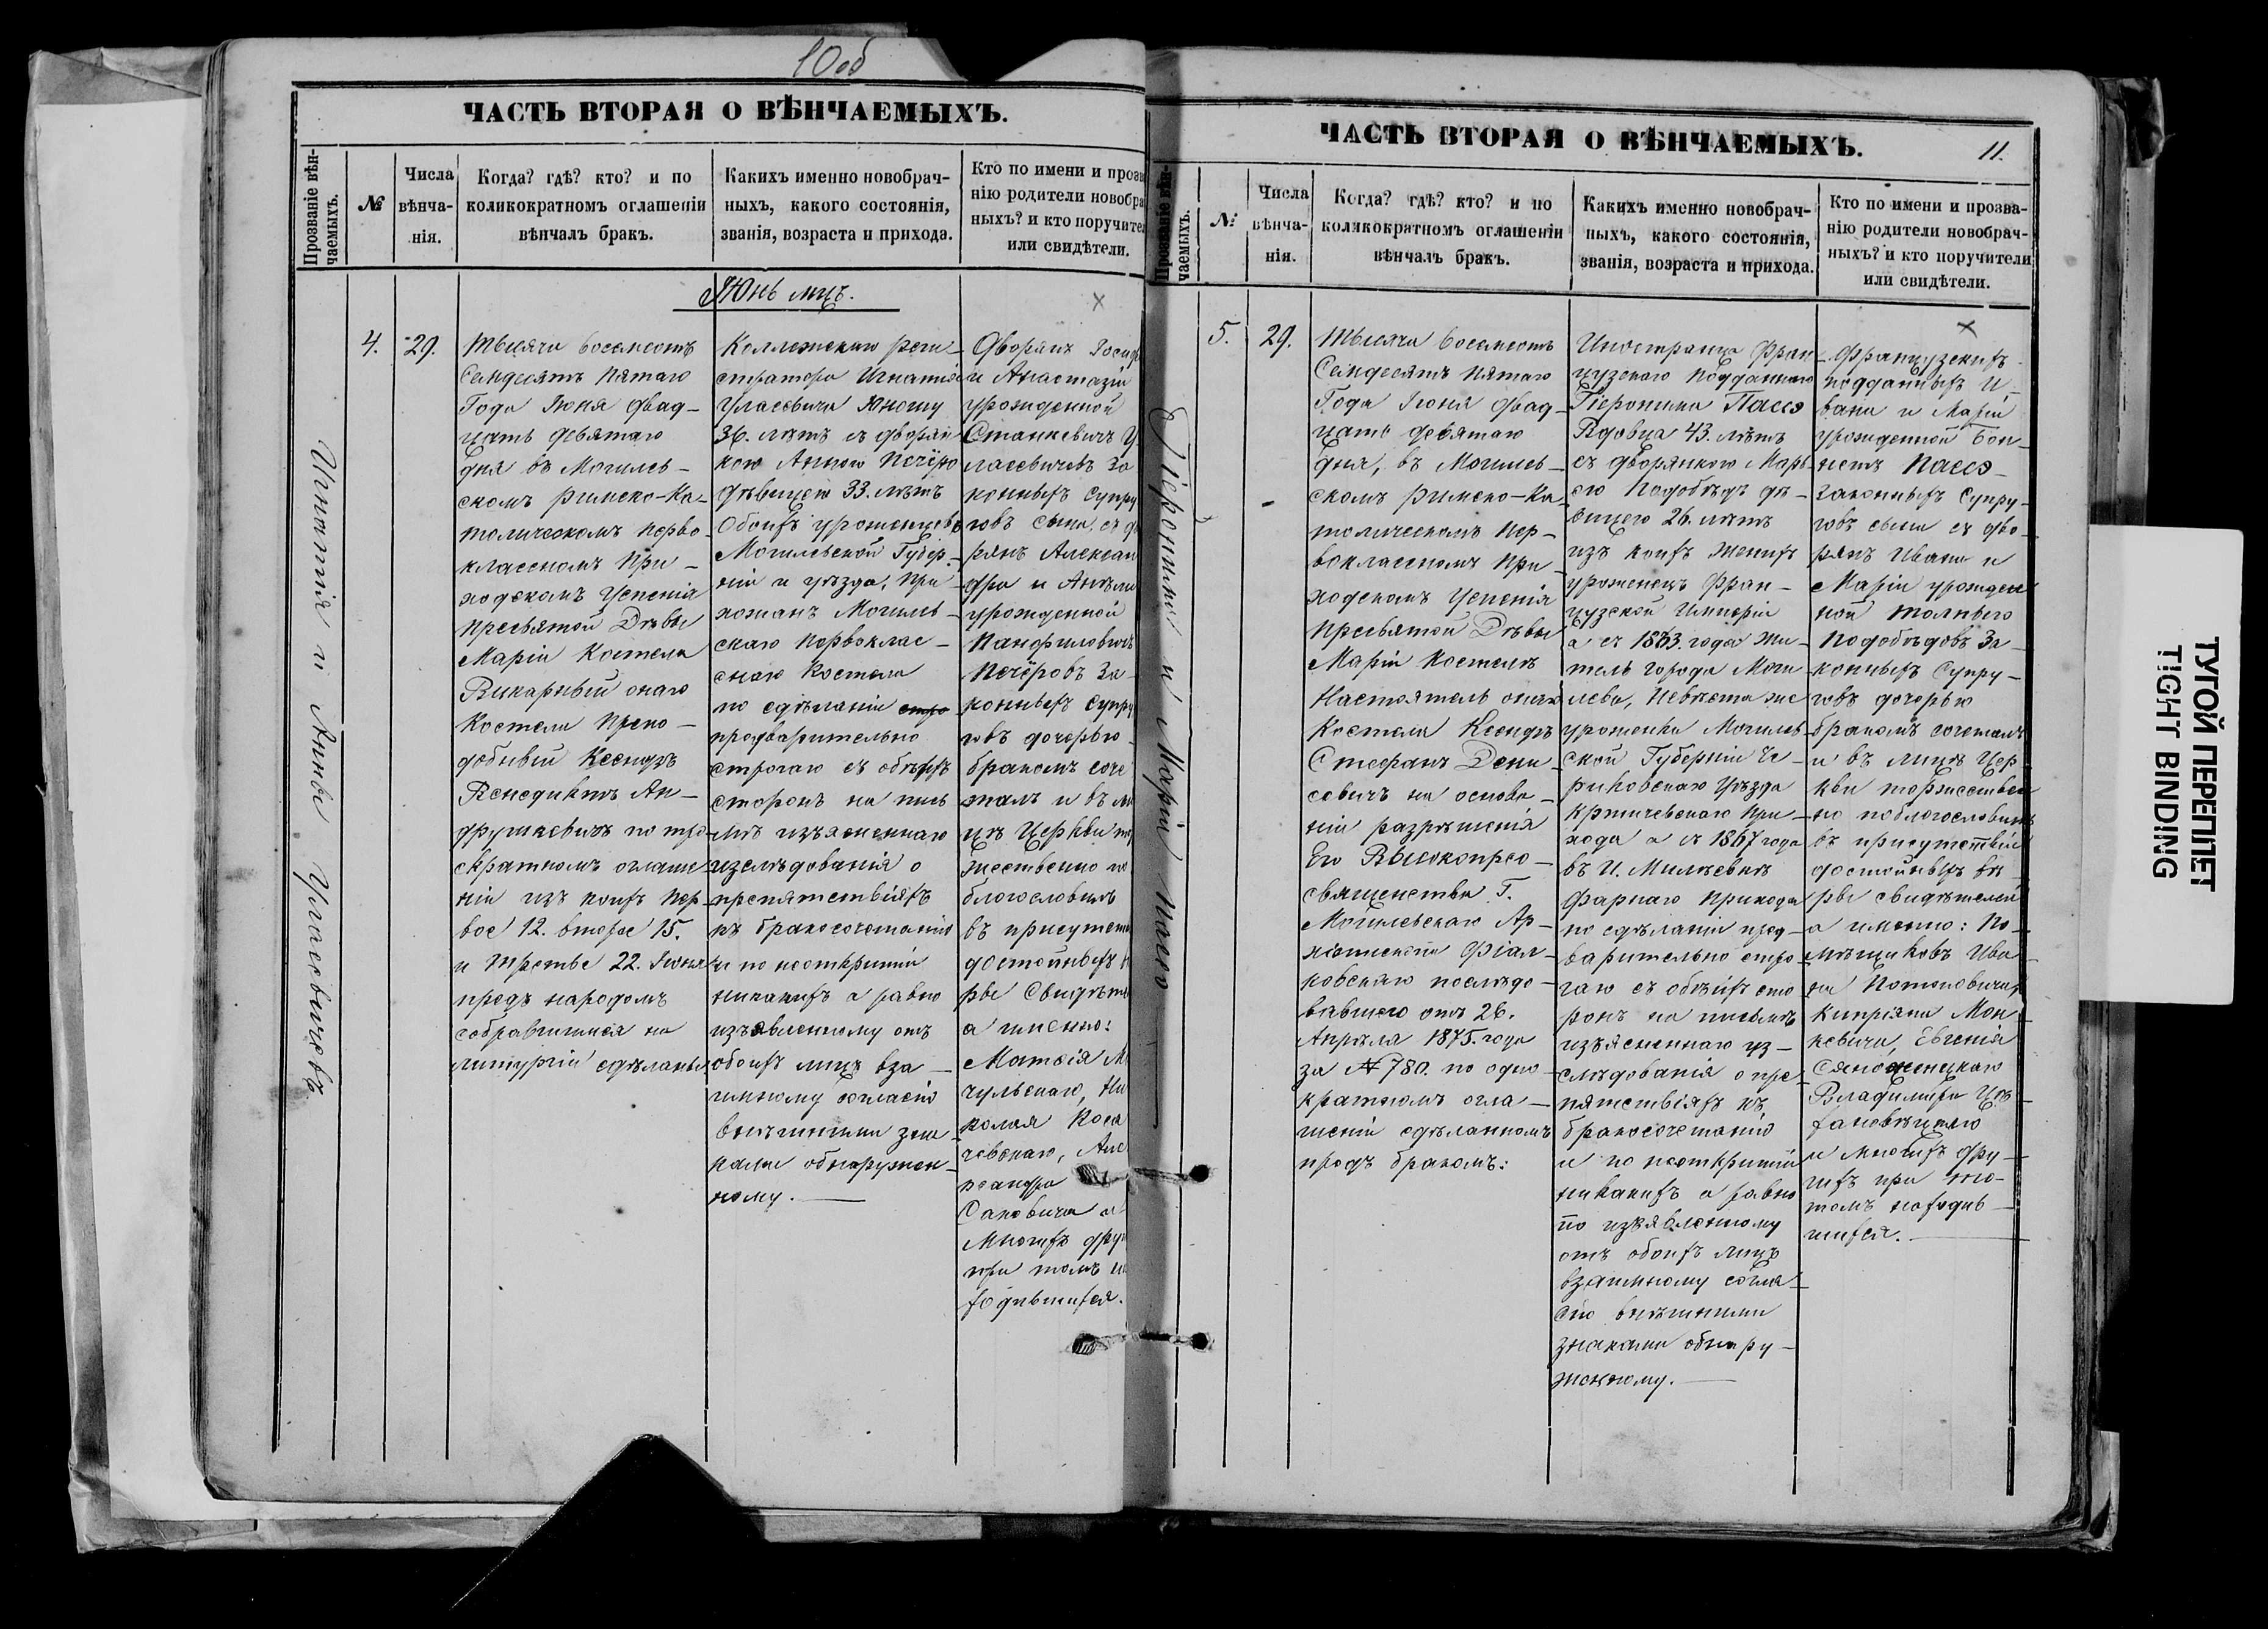 10об
ЧАСТЬ ВТОРАЯ О ВѢНЧАЕМЫХЪ.
Прозваніе вѣн-
чаемыхъ.
№
Числа
вѣнча-
нія.
Когда? гдѣ? кто? и по
коликократномъ оглашеніи
вѣнчалъ бракъ.
Какихъ именно новобрач-
ныхъ, какого состоянія,
званія, возраста и прихода.
Кто по имени и прозва
нію родители новобра
ныхъ? и кто поручител
или свидѣтели.
Юнь мцъ.
Игнатія и Анны Угласевичовъ
4.
29.
Тысяча восемсотъ
Семдесятъ пятаго
Года Іюня двад-
цать девятаго
дня въ Могилев-
скомъ римско-ка-
толическомъ перво-
классномъ При-
ходскомъ Успенія
Пресвятой Дѣвы
Маріи Костела
Викарный онаго
Костела Препо-
добный Ксендзъ
Венедиктъ Ан-
друшкевичъ по тре
кратномъ оглаше-
ніи изъ коихъ пер-
вое 12. второе 15.
и третье 22. Іюня
предъ народомъ
собравшимся на
литургіи сдѣланы.
Коллежскаго реги-
стратора Игнатія
Угласевича Юношу
36. лѣтъ съ дворян
кою Анною Печёро
дѣвицею 33. лѣтъ
Обоихъ уроженцевъ
Могилевской Губер-
ніи и уѣзда, При-
хожанъ Могилев-
скаго Первоклас-
снаго Костела
по сдѣланіи стро
предварительно
строгаго съ обѣихъ
сторонъ на пись
мѣ изъясненнаго
изслѣдованія о
препятствіяхъ
къ бракосочетанію
и по неоткрытіи
никакихъ а равно
изъявленному отъ
обоихъ лицъ вза-
имному согласію
внѣшними зна
ками обнаружен-
ному.
Дворянъ Іосиф
и Анастазіи
урожденной
Станкевичъ У
ласевичевъ За
конныхъ Супру
говъ сына, съ дво
рянъ Алексан
дра и Анѣли
урожденной
Панфиловичъ
Печёровъ За-
конныхъ Супру
говъ дочерью
бракомъ соче
талъ и въ ли
цѣ Церкви то
жественно по
благословилъ
въ присутств
достойныхъ в
ры Свидѣте
а именно:
Матвія Ми
чульскаго, Ни
колая Коса
чевскаго, Але
ксандра
Саковича и
Многихъ дру
при томъ на
ходившихся.
ЧАСТЬ ВТОРАЯ О ВѢНЧАЕМЫХЪ.
11.
Прозваніе вѣн-
чаемыхъ.
№
Числа
вѣнча-
нія.
Когда? гдѣ? кто? и по
коликократномъ оглашеніи
вѣнчалъ бракъ.
Какихъ именно новобрач-
ныхъ, какого состоянія,
званія, возраста и прихода.
Кто по имени и прозва-
нію родители новобрач-
ныхъ? и кто поручители
или свидѣтели.
Іеронима и Маріи Пассэ
5.
29.
Тысяча восемсотъ
Семдесятъ пятаго
Года Іюня двад-
цать девятаго
дня, въ Могилев-
скомъ римско-ка
толическомъ пер-
воклассномъ При-
ходскомъ Успенія
Пресвятой Дѣвы
Маріи Костелѣ
Настоятель онаго
Костела Ксендзъ
Стефанъ Дени-
совичъ на основа-
ніи разрѣшенія
Его Высокопрео-
священства Г.
Могилевскаго Ар-
хіепископа Фіал-
ковскаго послѣдо-
вавшаго отъ 26.
Апрѣля 1875. года
за № 780. по одно-
кратномъ огла-
шеніи сдѣланномъ
предъ бракомъ:
Иностранца Фран
цузскаго подданнаго
Іеронима Пассэ
Вдовца 43. лѣтъ
съ дворянкою Марі-
ею Подобѣдъ дѣ-
вицею 26. лѣтъ
изъ коихъ женихъ
уроженецъ Фран-
цузской Имперіи
а съ 1863. года жи-
тель города Моги
лева, Невѣста же
уроженка Могилев-
ской Губерніи Че-
риковскаго уѣзда
Кричевскаго при-
хода а съ 1867 года
въ И. Милѣевѣ
фарнаго прихода
по сдѣланіи пред-
варительно стро-
гаго съ обѣихъ сто
ронъ на письмѣ
изъясненнаго из-
слѣдованія о пре-
пятствіяхъ къ
бракосочетанію
и по неоткрытіи
никакихъ а равно
по изъявленному
отъ обоихъ лицъ
взаимному согла-
сію внѣшними
знаками обнару-
женному.
Французскихъ
подданныхъ И-
вана и Маріи
урожденной Бон-
нетъ Пассэ
законныхъ Супру-
говъ сына съ дво-
рянъ Ивана и
Маріи урожден
ной Толпыго
Подобѣдовъ За-
конныхъ Супру-
говъ дочерью
бракомъ сочеталъ
и въ лицѣ Цер
кви торжествен
но поблагословилъ
въ присутствіи
достойныхъ вѣ-
ры свидѣтелей
а именно: По-
мѣщиковъ Ива-
на Потоповича,
Кипріяна Мон
кевича, Евгенія
Сяноженцкаго
Владиміра Цѣ-
хановѣцкаго
и многихъ дру-
гихъ при то-
томъ находив-
шихся.
ТУГОЙ ПЕРЕПЛЕТ
TIGHT BINDING